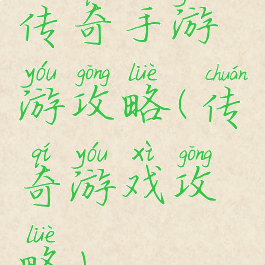 传奇手游
yóu gōng lüè chuán
游攻略(传
qí yóu xì gōng
奇游戏攻
lüè
略)